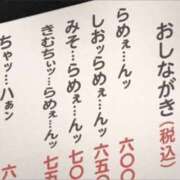 おしながき（税込）
らめぇ…んッ 六〇〇
しおッらめぇ…んッ 六五〇
みそ…らめぇ…んッ 七
きむちぃッ…らめぇ…んッ 七五
ちゃッ…ハぁン 六